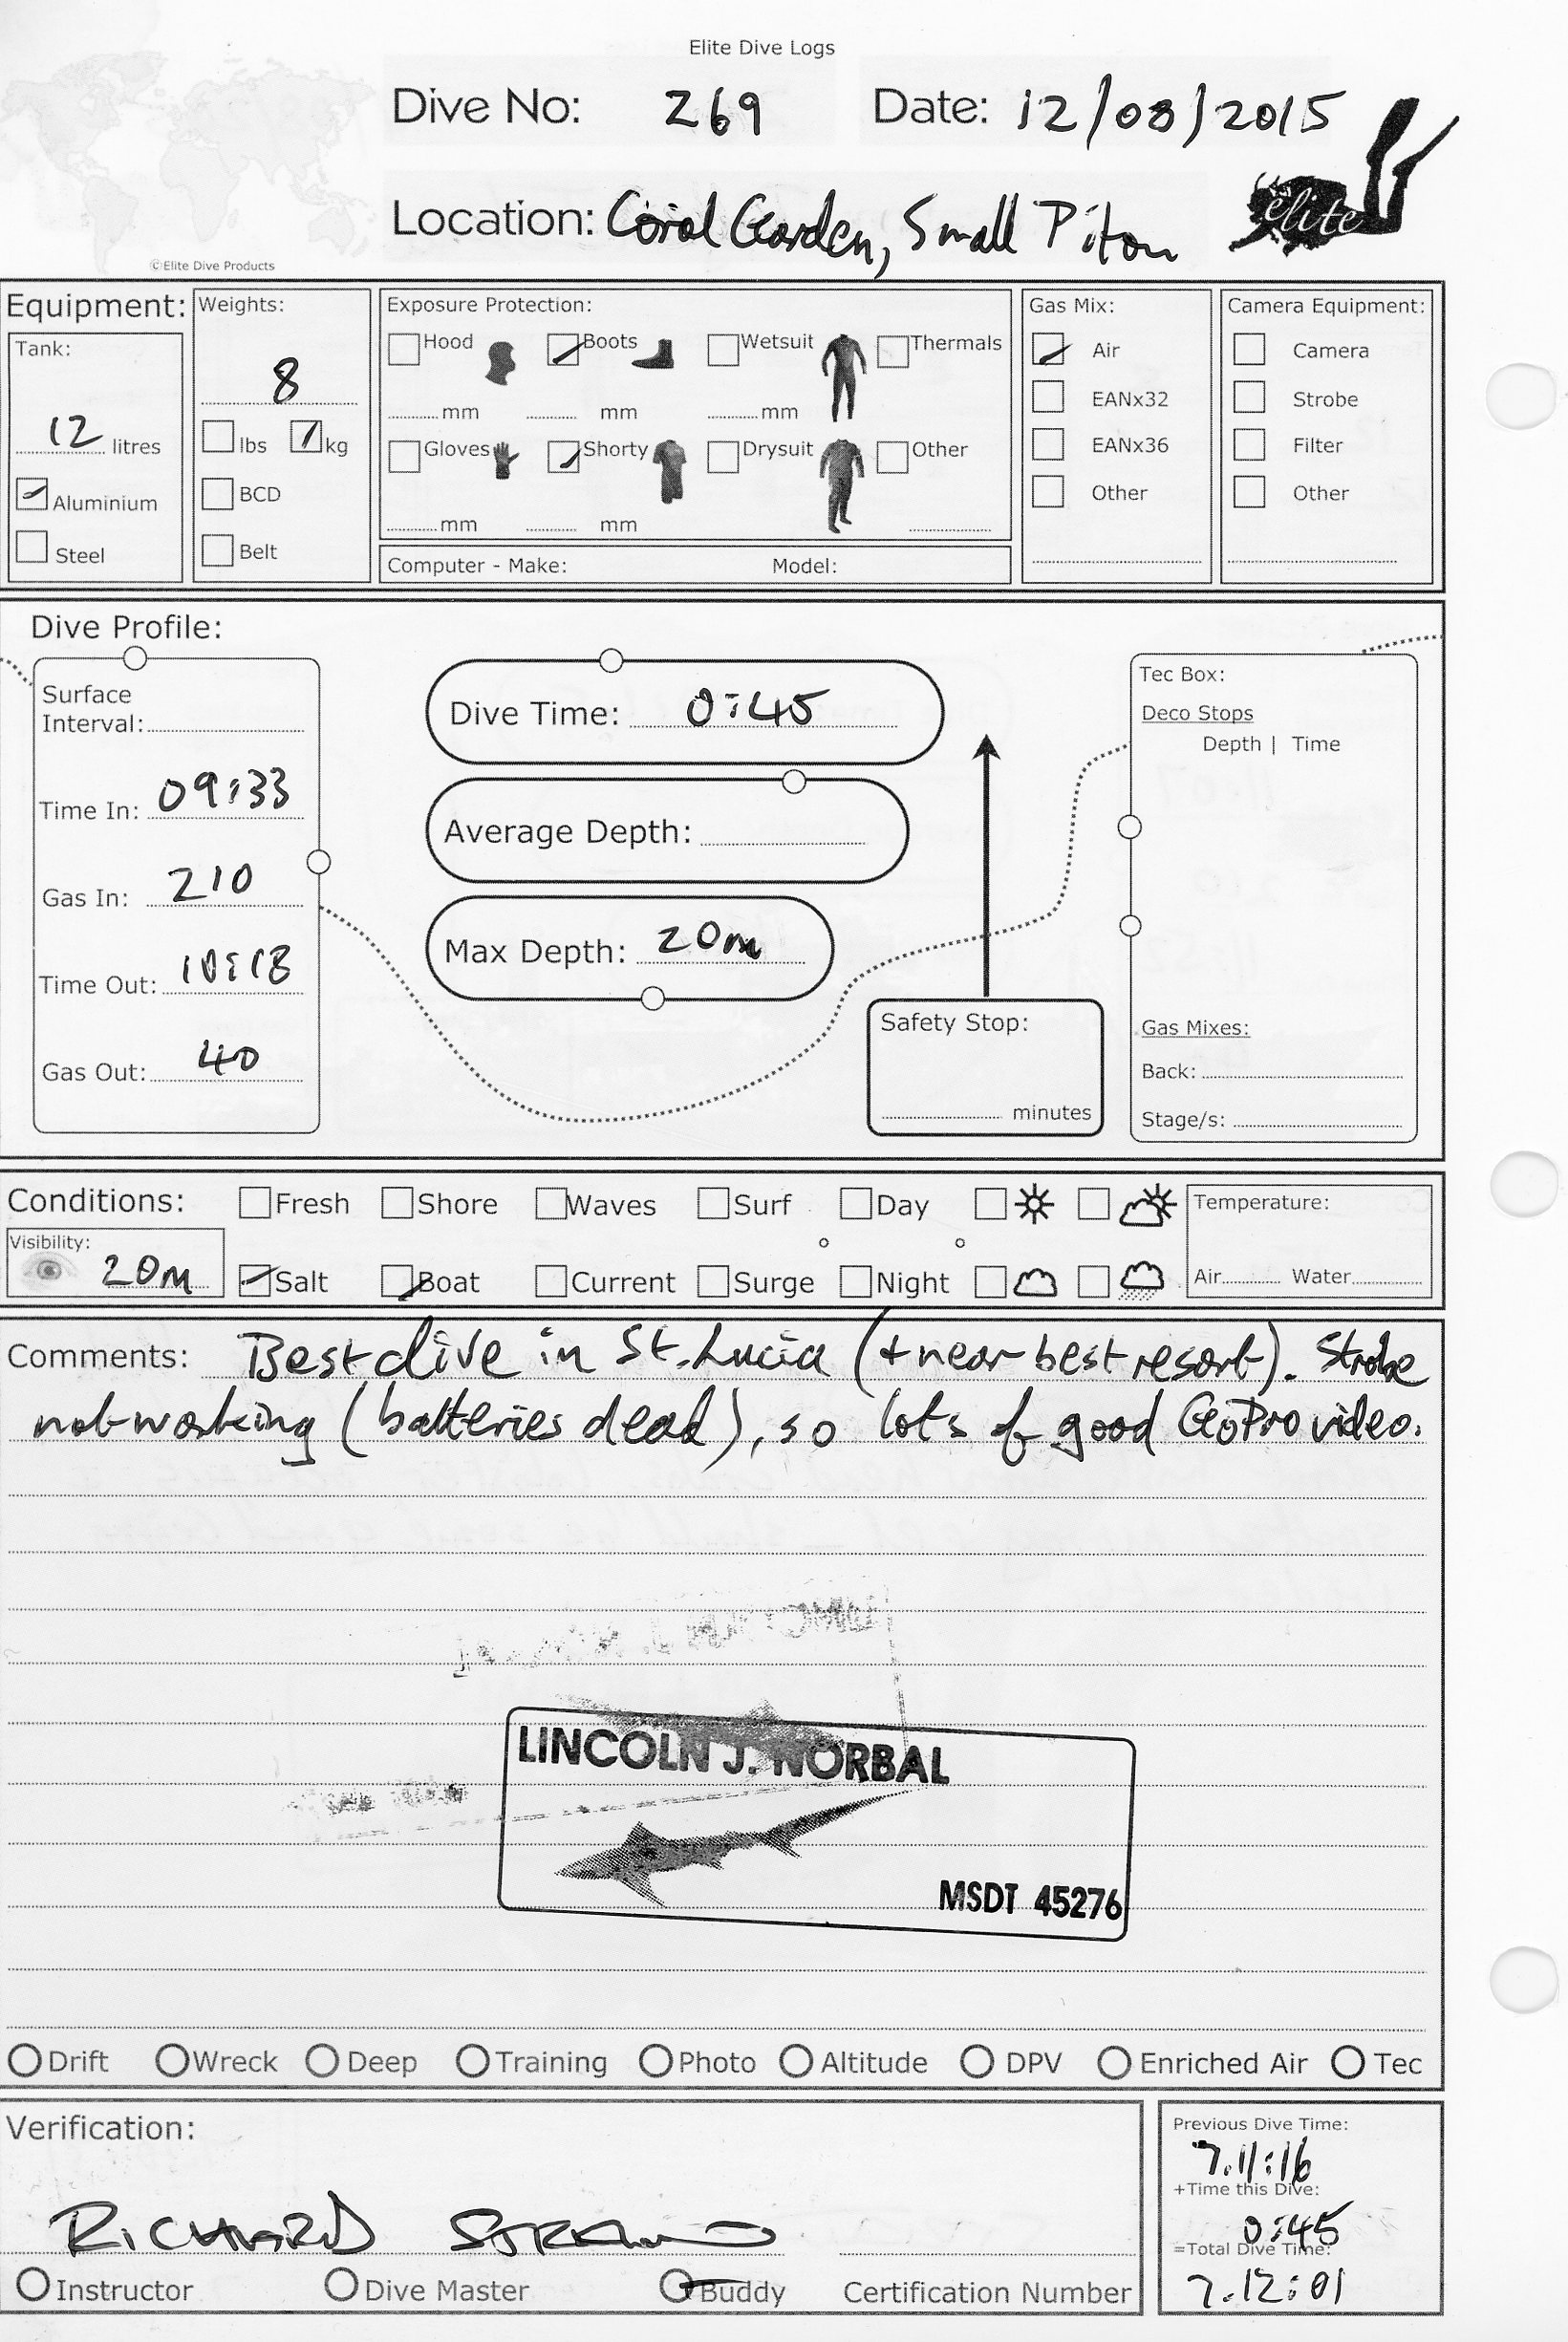 Elite Dive Logs
Dive No: 269 Date: 12/03/2015
Location: Coral Garden, Small Piton
élite
©Elite Dive Products
Equipment: Weights: Exposure Protection: Gas Mix: Camera Equipment:
Tank: 8 Hood Boots Wetsuit Thermals Air Camera
mm mm mm EANx32 Strobe
12 litres lbs kg Gloves Shorty Drysuit Other EANx36 Filter
Aluminium BCD Other Other
mm mm
Steel Belt Computer - Make: Model:
Dive Profile:
Surface
Interval:
Time In: 09:33
Gas In: 210
Time Out: 10:18
Gas Out: 40
Dive Time: 0:45
Average Depth:
Max Depth: 20m
Safety Stop:
minutes
Tec Box:
Deco Stops
Depth | Time
Gas Mixes:
Back:
Stage/s:
Conditions: Fresh Shore Waves Surf Day Temperature:
Visibility: 20m Salt Boat Current Surge Night Air Water
Comments: Best dive in St. Lucia (+ near best resort). Strobe
not working (batteries dead), so lots of good GoPro video.
LINCOLN J. NORBAL
MSDT 45276
Drift Wreck Deep Training Photo Altitude DPV Enriched Air Tec
Verification:
RICHARD
Instructor Dive Master Buddy Certification Number
Previous Dive Time:
7.11:16
+Time this Dive:
0:45
=Total Dive Time:
7.12:01